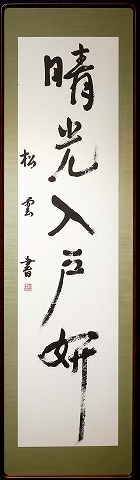 晴光入戸妍
松雲書